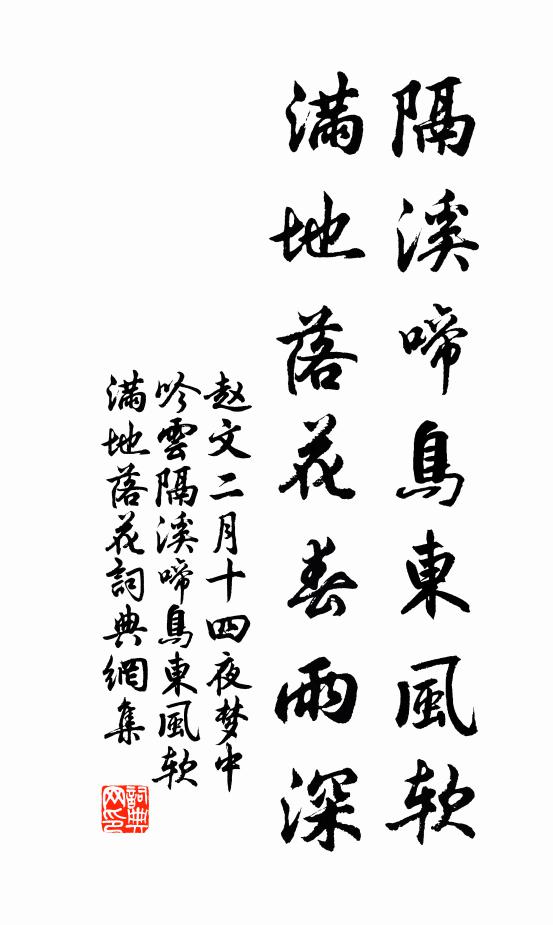 隔溪啼鳥東風軟
滿地落花春雨深
赵文二月十四夜梦中
吟雲隔溪啼鳥東風软
滿地落花詞典網集
詞典
网印